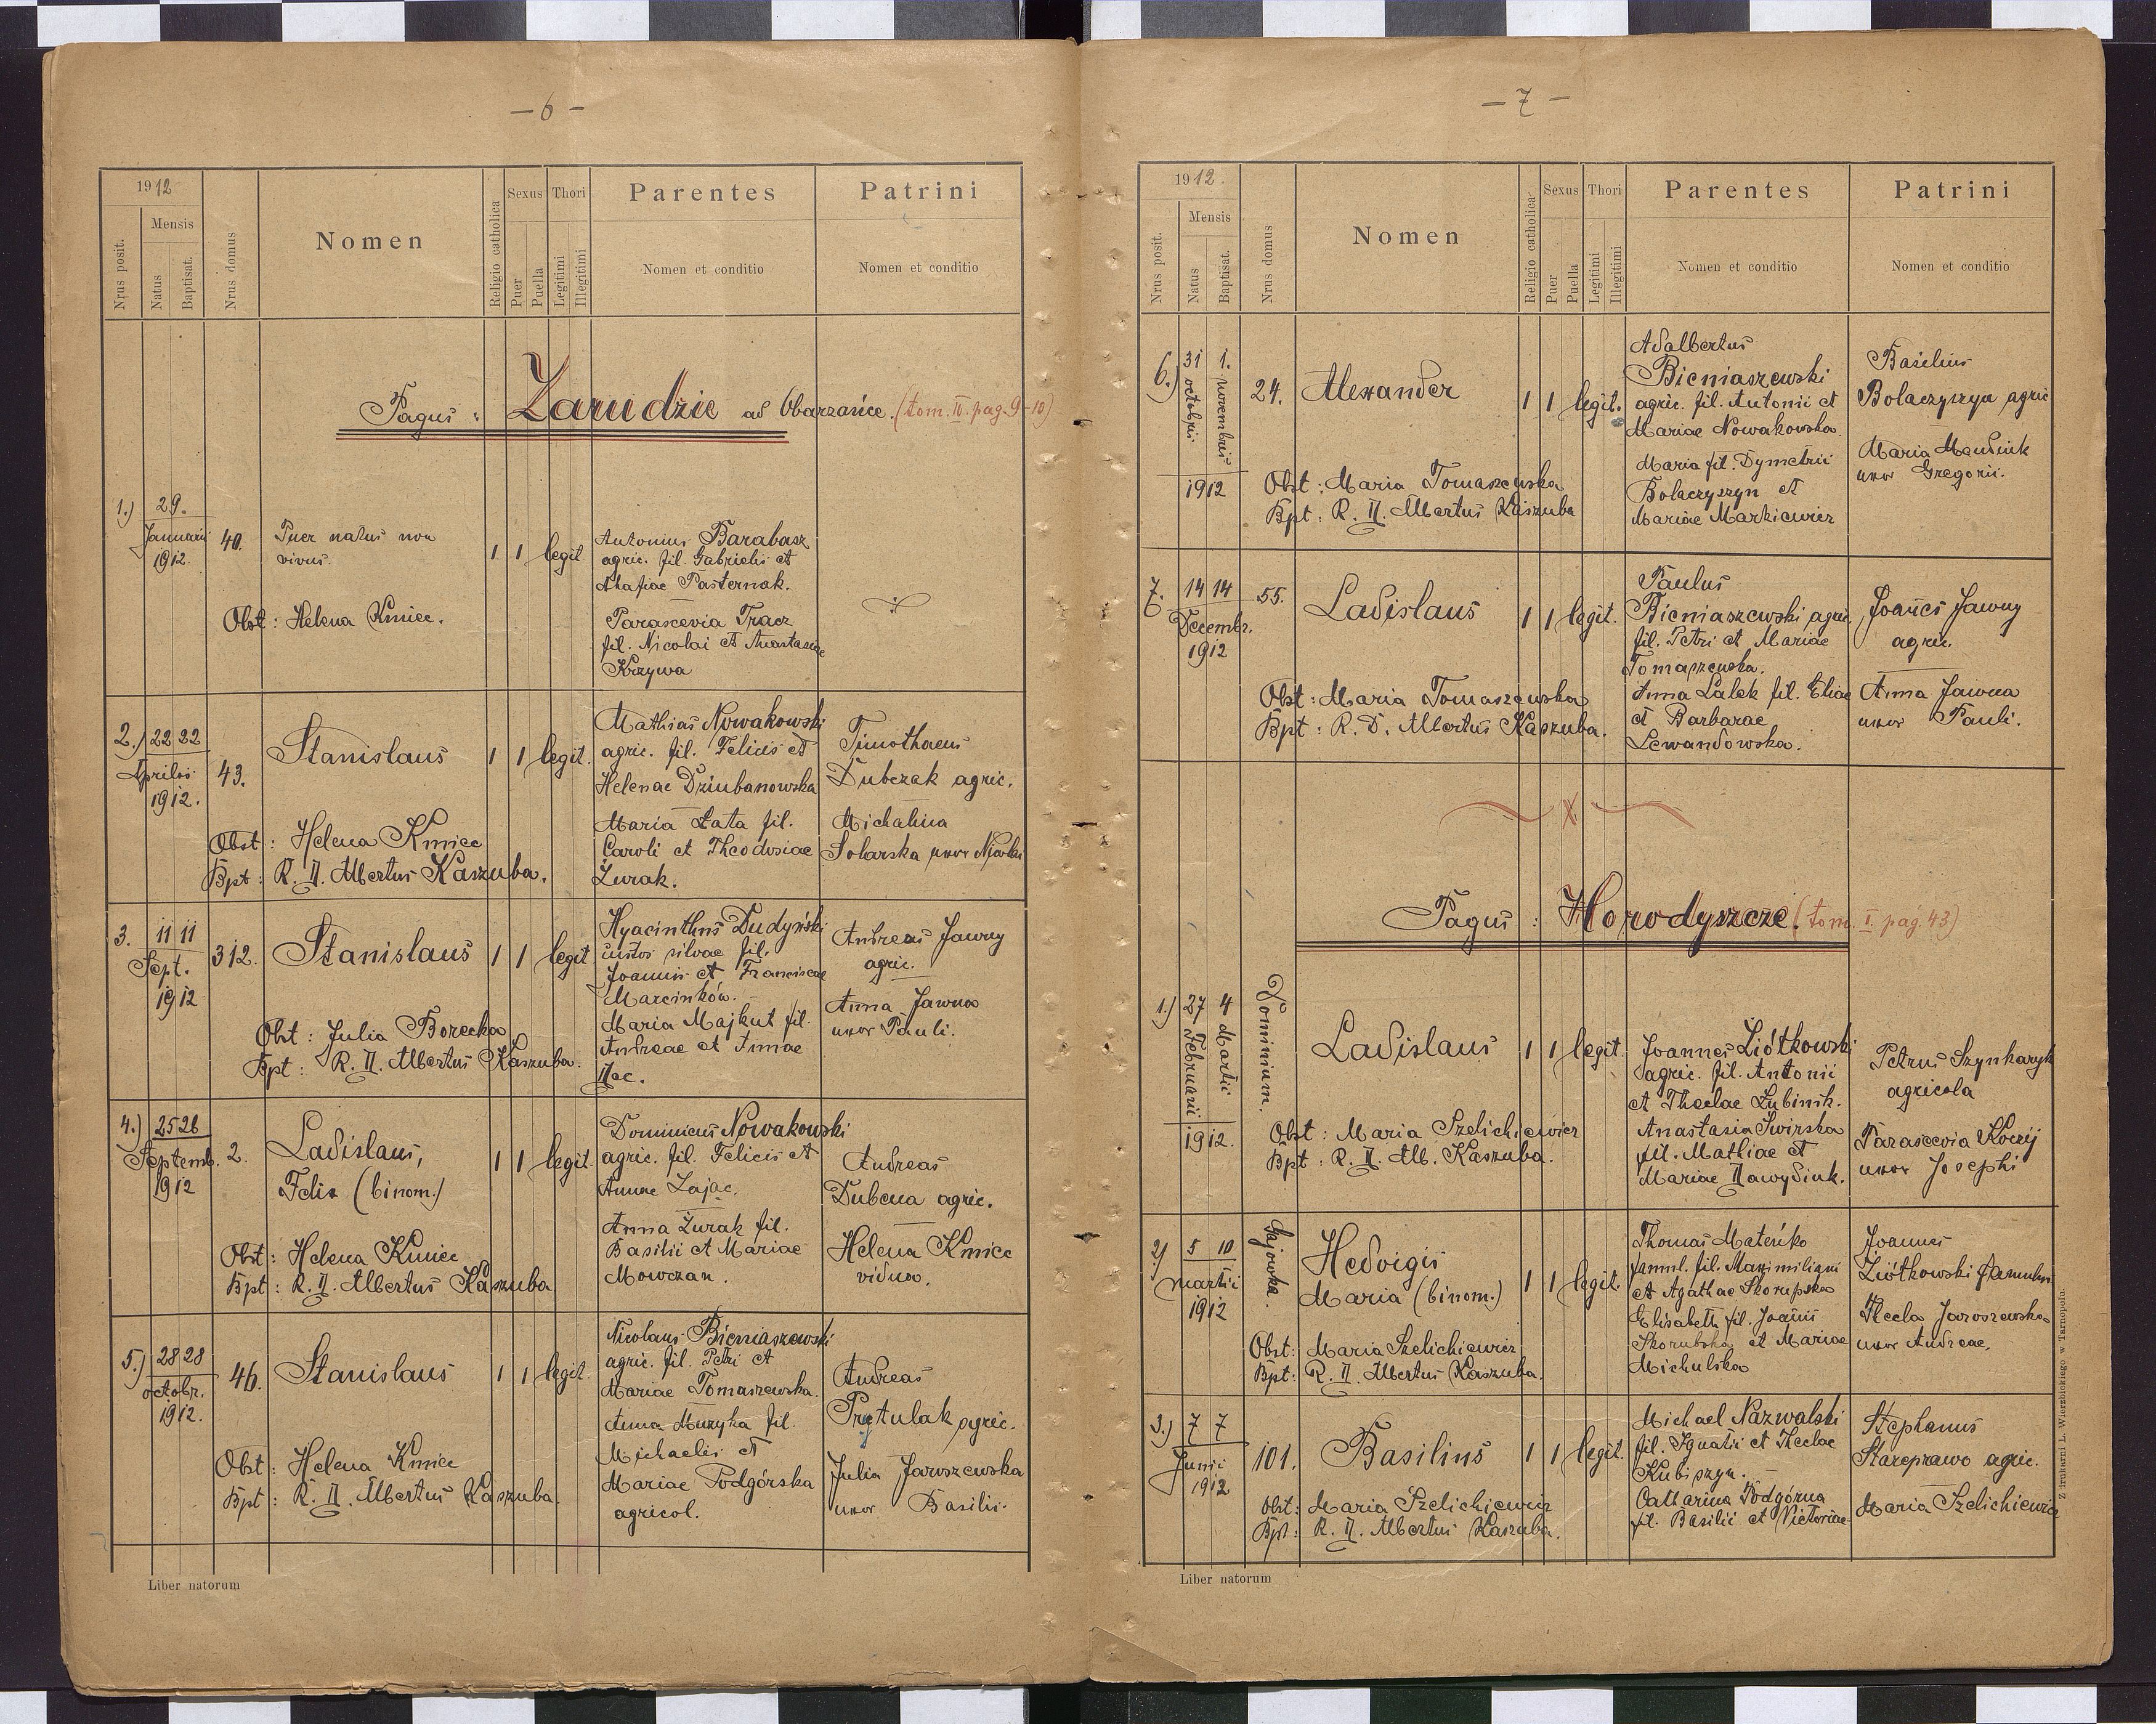 — 6 —
1912
Nrus posit.
Mensis
Natus
Baptisat.
Nrus domus
Nomen
Religio catholica
Sexus
Puer
Puella
Thori
Legitimi
Illegitimi
Parentes
Nomen et conditio
Patrini
Nomen et conditio
Pagus : Zarudzie ad Obarzańce. (tom. IV. pag. 9-10)
1.) 29.
Januarii
1912.
40.
Puer natus non
vivus.
1 1 legit.
Antonius Barabasz
agric. fil. Gabrielis et
Ahafiae Pasternak.
Parascevia Tracz
fil. Nicolai et Anastasiae
Krzywa
Obst : Helena Kmiec.
2.) 22 22
Aprilis
1912.
43.
Stanislaus
1 1 legit.
Mathias Nowakowski
agric. fil. Felicis et
Helenae Dziubanowska
Maria Łata fil.
Caroli et Theodosiae
Żurak.
Timothaeus
Dubczak agric.
Michalina
Solarska uxor
Obst : Helena Kmiec
Bpt : R. D. Albertus Kaszuba.
3. 11 11
Sept.
1912
312.
Stanislaus
1 1 legit
Hyacinthus Dudyński
custos silvae fil.
Joannis et Franciscae
Marcinków.
Maria Majkut fil.
Andreae et Annae
Andreas Jawny
agric.
Anna Jawna
uxor Pauli.
Obst : Julia Borecka
Bpt : R. D. Albertus Kaszuba.
4.) 25 26
Septemb.
1912
2.
Ladislaus,
Felix (binom.)
1 1 legit.
Dominicus Nowakowski
agric. fil. Felicis et
Annae Zając.
Anna Żurak fil.
Basilii et Mariae
Mowczan.
Andreas
Dubena agric.
Helena Kmiec
vidua.
Obst : Helena Kmiec
Bpt : R. D. Albertus Kaszuba
5.) 28 28
octobr.
1912.
46.
Stanislaus
1 1 legit.
Nicolaus Bieniaszewski
agric. fil. Petri et
Mariae Tomaszewska.
Anna Muzyka fil.
Michaelis et
Mariae Podgórska
agricol.
Andreas
Prytulak agric.
Julia Jaroszewska
uxor Basilii.
Obst : Helena Kmiec
Bpt : R. D. Albertus Kaszuba.
Liber natorum
— 7 —
1912.
Nrus posit.
Mensis
Natus
Baptisat.
Nrus domus
Nomen
Religio catholica
Sexus
Puer
Puella
Thori
Legitimi
Illegitimi
Parentes
Nomen et conditio
Patrini
Nomen et conditio
6.) 31 octobris
1. novembris
1912
24.
Alexander
1 1 legit.
Adalbertus
Bieniaszewski
agric. fil. Antonii et
Mariae Nowakowska.
Maria fil. Dymetrii
Bolaczyszyn et
Mariae Markiewicz
Basilius
Bolaczyszyn agric
Maria
uxor Gregorii.
Obst : Maria Tomaszewska
Bpt : R. D. Albertus Kaszuba
7. 14 14
Decembr.
1912
55.
Ladislaus
1 1 legit.
Paulus
Bieniaszewski agric.
fil. Petri et Mariae
Tomaszewska.
Anna Lalek fil. Eliae
et Barbarae
Lewandowska.
Joannes Jawny
agric.
Anna Jawna
uxor Pauli.
Obst : Maria Tomaszewska
Bpt : R. D. Albertus Kaszuba.
Pagus : Horodyszcze. (tom. I. pag. 43)
1.) 27 Februarii
4 Martii
1912.
Dominium.
Ladislaus
1 1 legit.
Joannes Ziółkowski
agric. fil. Antonii
et Theclae Łubinik.
Anastasia Świrska
fil. Mathiae et
Mariae Dawydiuk.
Petrus Szynkaryk
agricola
Parascevia Kocij
uxor Josephi
Obst : Maria Szelichiewicz
Bpt : R. D. Alb. Kaszuba.
2) 5 10
martii
1912
Gajówka.
Hedvigis
Maria (binom.)
1 1 legit.
Thomas Mateńko
famul. fil. Maximiliani
et Agathae Skorupska
Elisabeth fil. Joannis
Skorubska et Mariae
Michulska
Joannes
Ziółkowski famulus
Thecla Jaroszewska
uxor Andreae.
Obst: Maria Szelichiewicz
Bpt: R. D. Albertus Kaszuba.
3.) 7 7
Junii
1912
101.
Basilius
1 1 legit.
Michael Nazwalski
fil. Ignatii et Theclae
Kubiszyn.
Catharina Podgórna
fil. Basilii et Victoriae
Stephanus
Stareprawo agric.
Maria Szelichiewicz
Obst: Maria Szelichiewicz
Bpt: R. D. Albertus Kaszuba.
Liber natorum
Z drukarni L. Wierzbickiego w Tarnopolu.